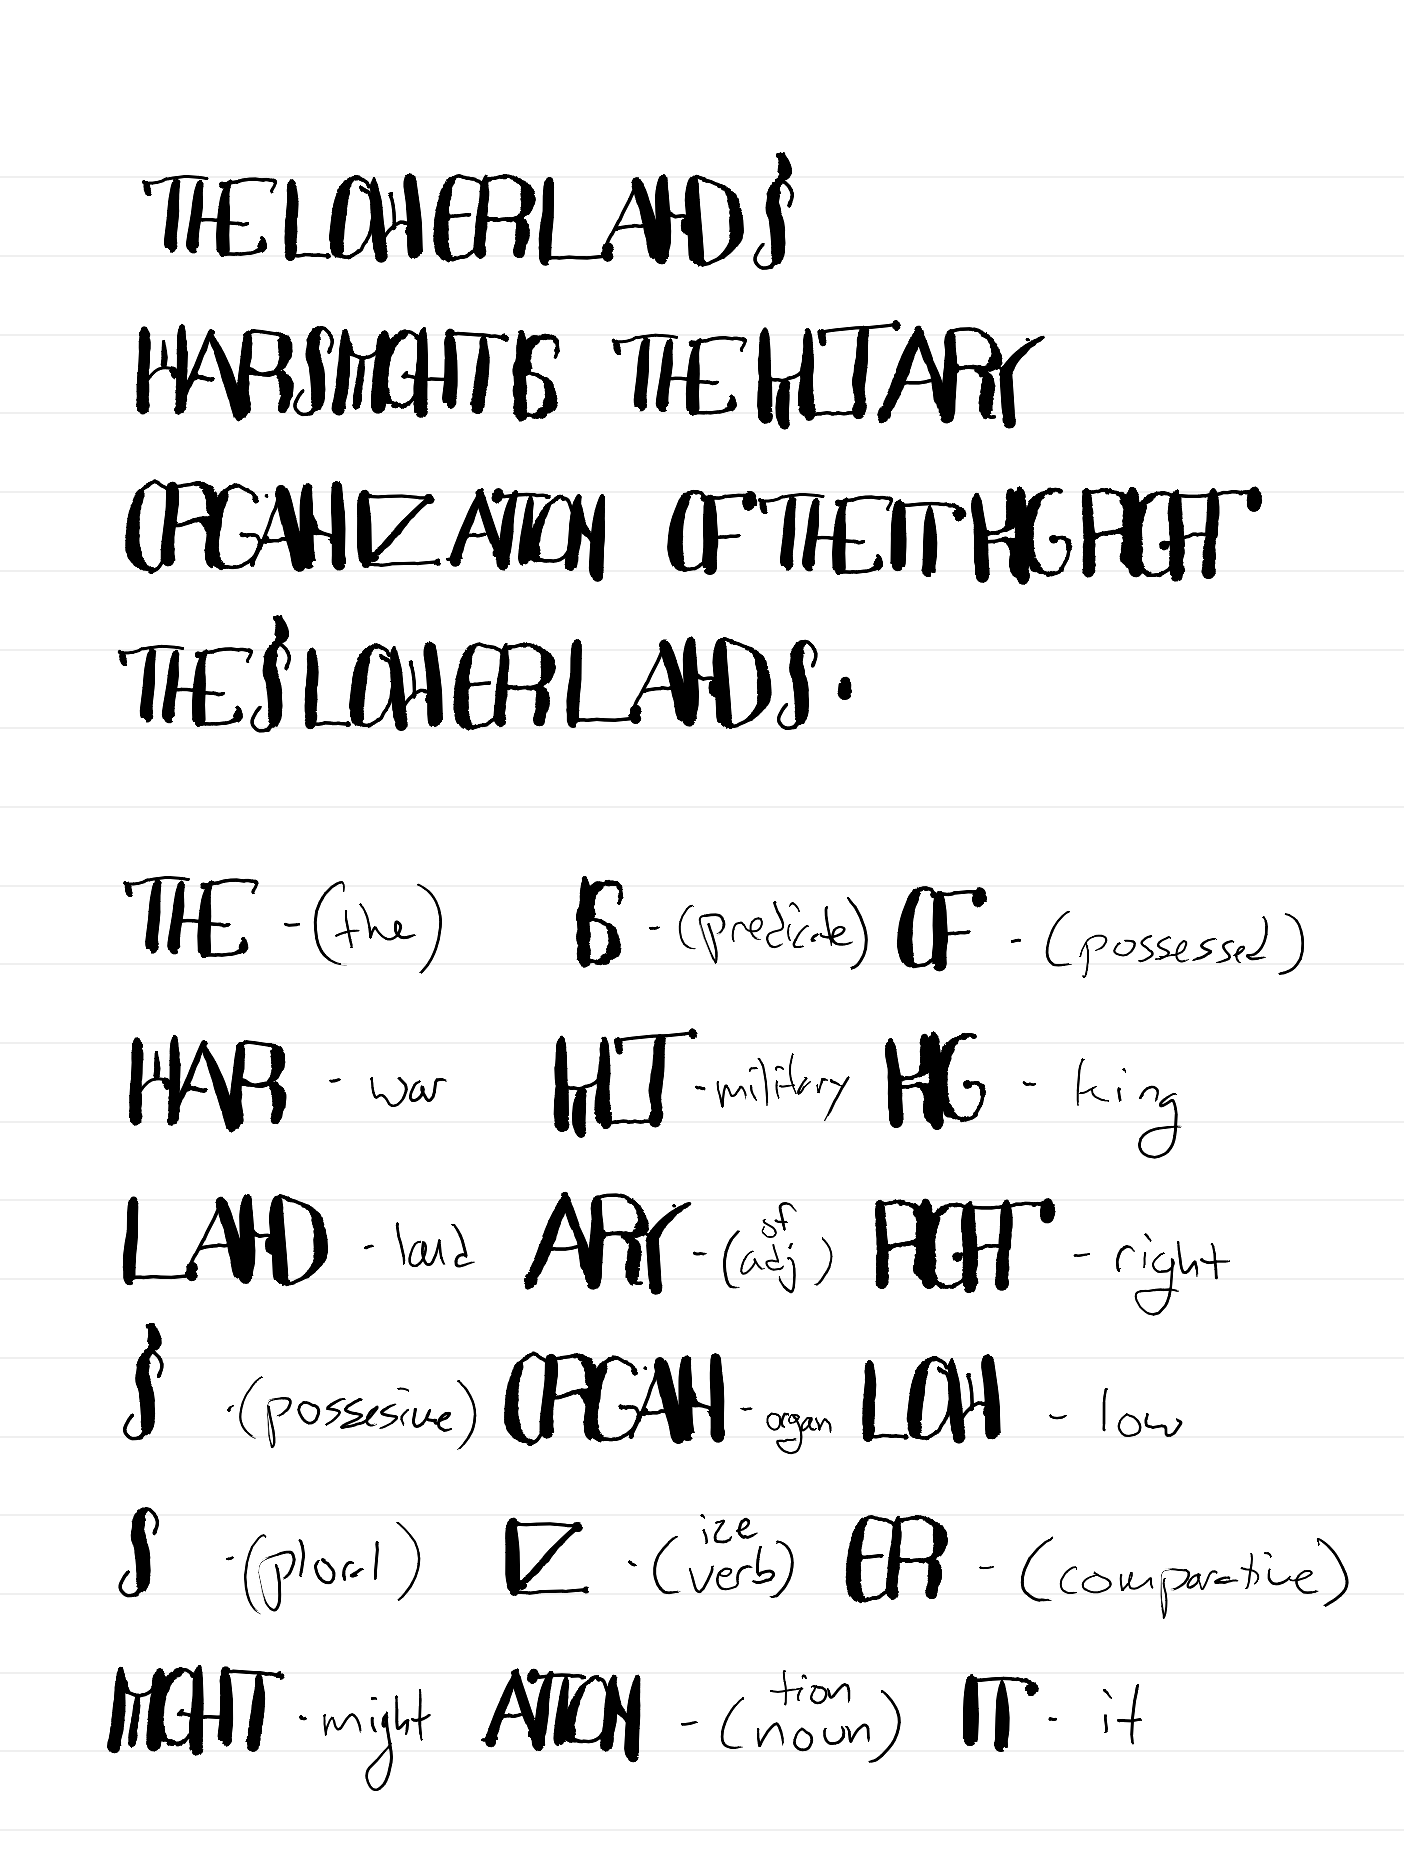 THE LOWER LAND'S
WARS MIGHT IS THE MILTARY
ORGANIZATION OF THE IT KING RIGHT
THE'S LOWER LANDS.
THE - (the) IS - (predicate) OF - (possessed)
WAR - war MILT - military KING - king
LAND - land ARY - (of adj) RIGHT - right
'S - (possesive) ORGAN - organ LOW - low
S - (plural) IZ - (ize verb) ER - (comparative)
MIGHT - might ATION - (tion noun) IT - it